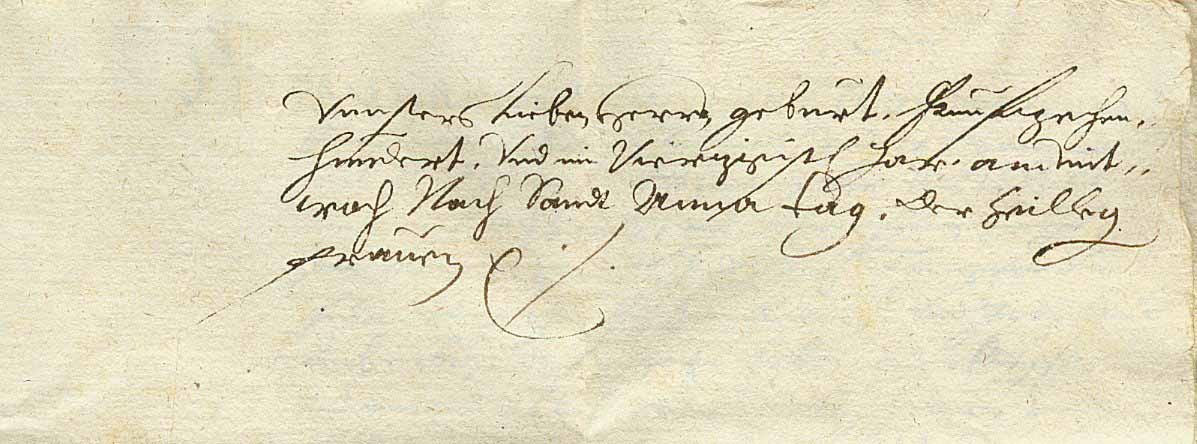 Vnnsers Lieben Herrn geburt. Funnfzechen..
hundert. Vnd im Viertzigisth Jar. am mit..
woch Nach Sandt Anna tag. der heilleg
frauen